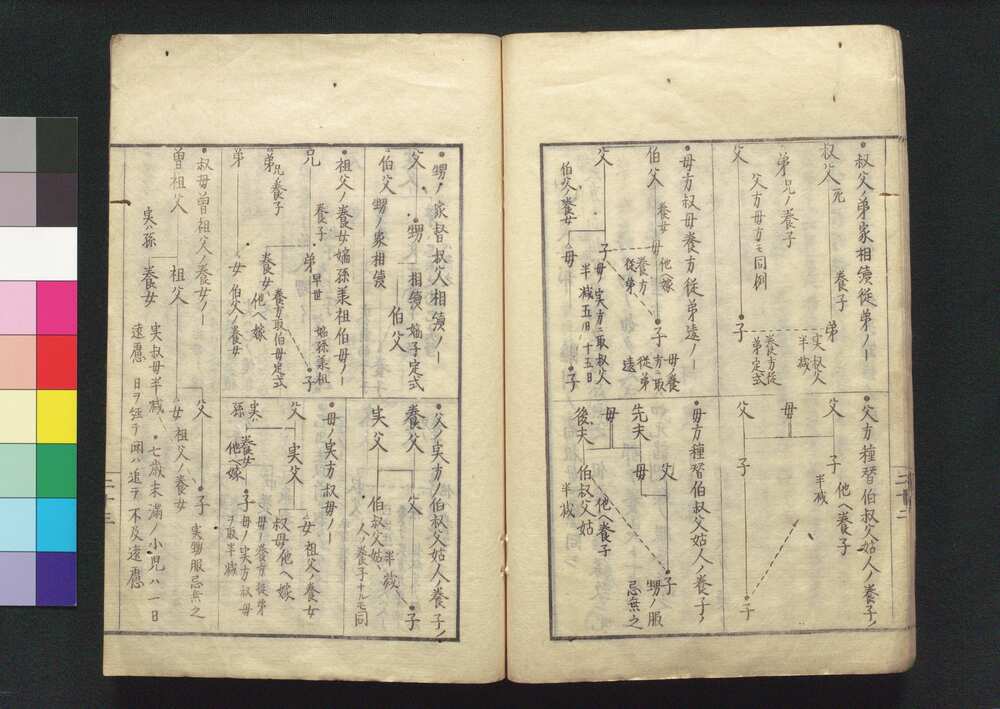 叔父ノ弟家相續従弟ノー
叔父 死
養子
弟
実叔父
半減
弟兄ノ養子
養方従
弟定式
父方母方モ同例
父
子
母方叔母養方従弟違ノー
伯父
養女
母 他ヘ嫁
養方
従弟
子
母ノ養
方取
従弟
違
父
子
母ノ実方ニ取叔父
半減五日十五日
伯父ノ養女
母
子
父方種替伯叔父姑人ノ養子ノ
父
子
他ヘ養子
半減
母
父
子
子
母方種替伯叔父姑人ノ養子ノ
先夫
父
子
甥ノ服
忌無之
母
母
他ヘ養子
後夫
伯叔父姑
半減
二十二
甥ノ家督叔父相續ノー
父
甥
相續 嫡子定式
伯父
伯父 甥ノ家相續
祖父ノ養女嫡孫承祖伯母ノー
兄
養子
弟 早世
嫡孫承祖
子
弟兄ノ養子
養女
養方取伯母定式
他ヘ嫁
弟
女 伯父ノ養女
叔母曽祖父ノ養女ノー
曽祖父
祖父
父
子
実甥服忌無之
女 祖父ノ養女
実ハ孫
養女
実叔母半減
七歳未満ノ小児ハ一日
遠慮 日ヲ経テ聞ハ追テ不及遠慮
父ノ実方ノ伯叔父姑人ノ養子ノ
養父
父
子
半減
実父
伯叔父姑
人ノ養子ナルモ同
母ノ実方叔母ノー
父
実父
女 祖父ノ養女
叔母他ヘ嫁
実ハ
孫
養女
他ヘ嫁
子
母ノ養方従弟
母ノ実方叔母
ヲ取半減
二十三